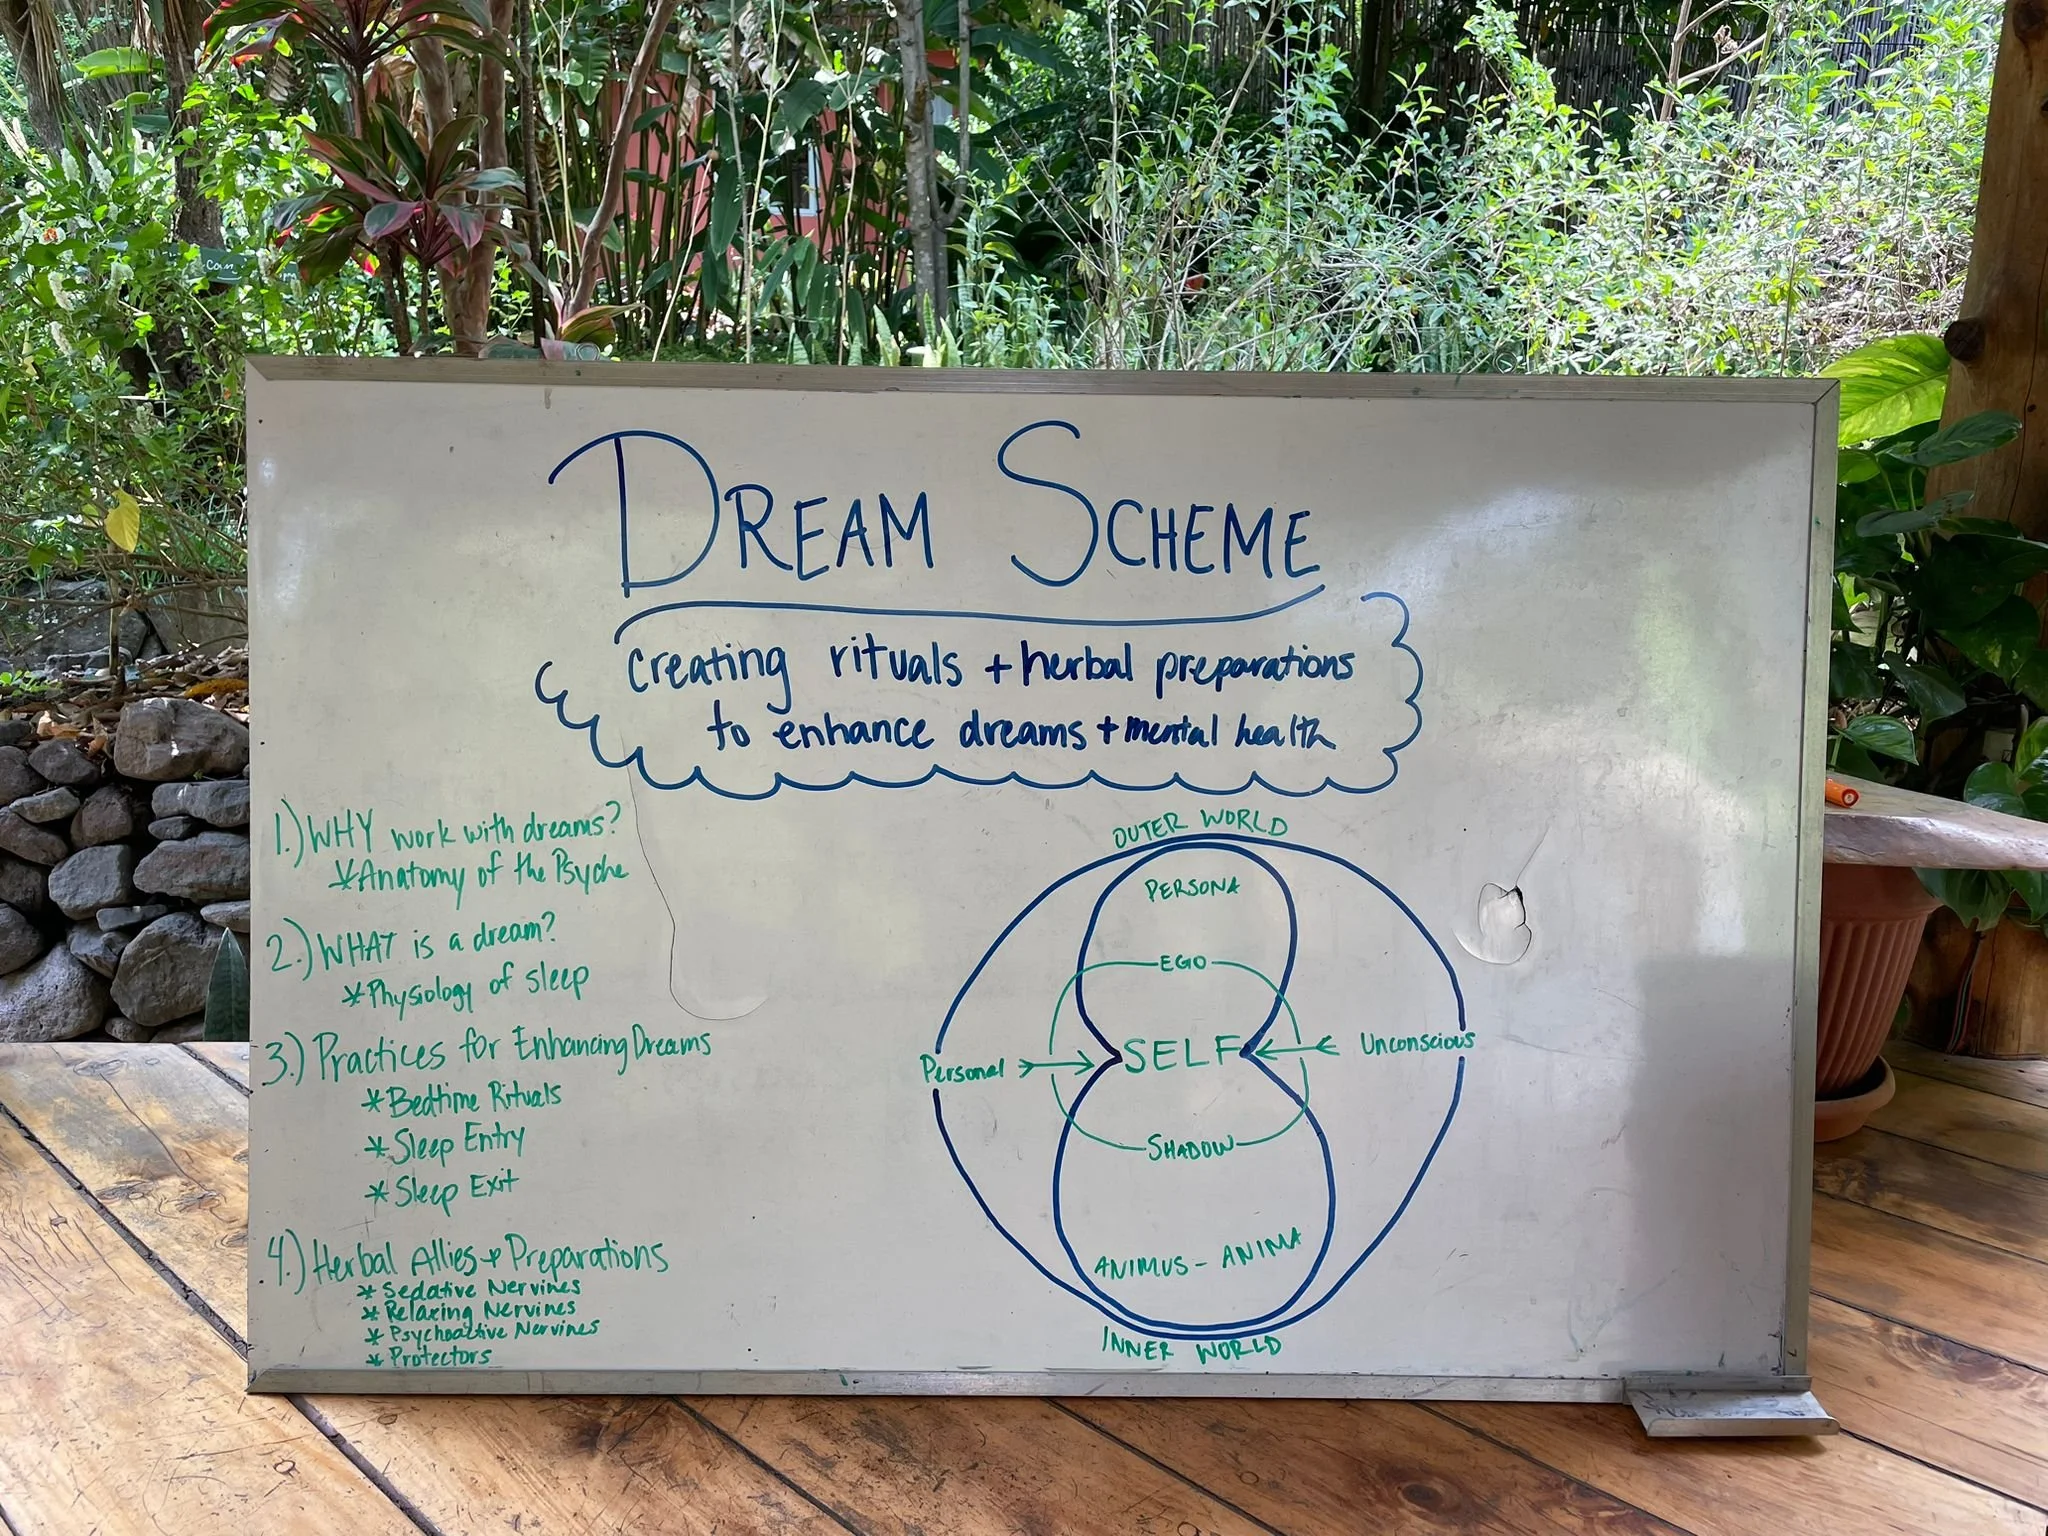 DREAM SCHEME
creating rituals + herbal preparations
to enhance dreams + mental health
1.) WHY work with dreams?
* Anatomy of the Psyche
2.) WHAT is a dream?
* Physiology of sleep
3.) Practices for Enhancing Dreams
* Bedtime Rituals
* Sleep Entry
* Sleep Exit
4.) Herbal Allies + Preparations
* Sedative Nervines
* Relaxing Nervines
* Psychoactive Nervines
* Protectors
OUTER WORLD
PERSONA
EGO
Personal
SELF
Unconscious
SHADOW
ANIMUS - ANIMA
INNER WORLD